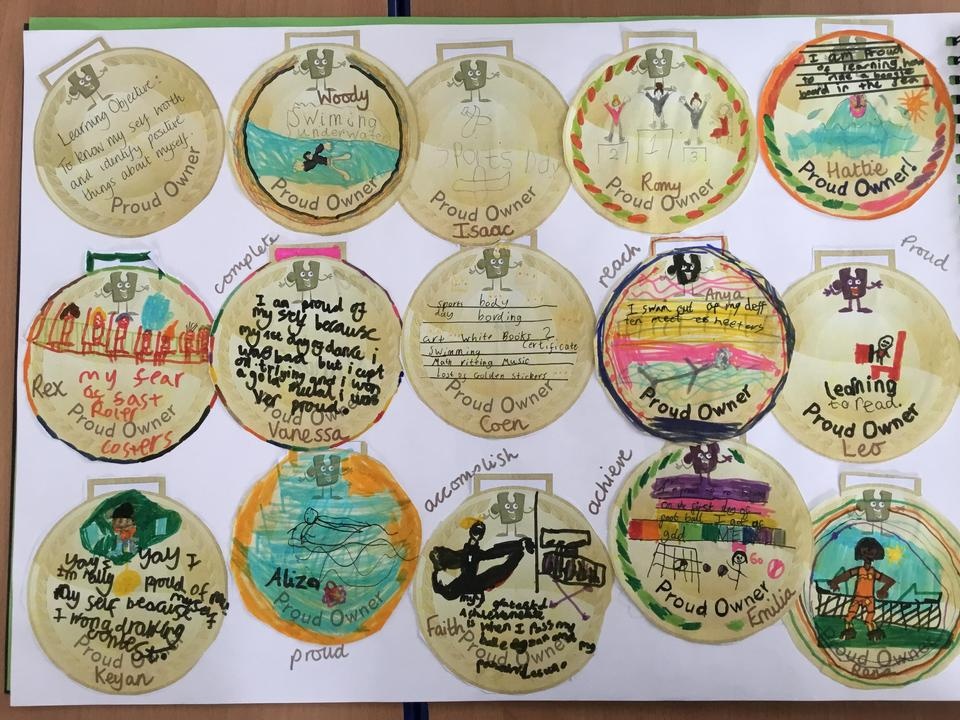 Learning Objective:
To know my self worth
and identify positive
things about myself.
Proud Owner
Woody
Swiming
underwater
Proud Owner
Sports Day
Proud Owner
Isaac
2 1 3
Romy
Proud Owner
I am Proud
of learning how
to ride a boogie
board in the sea
Hattie
Proud Owner!
complete
reach
Proud
my fear
of fast
Roler
Proud Owner
costers
Rex
I am proud of
my self because
my
dance i
was bad but i cept
on triying and i won
a gold medal i was
ver proud.
Proud Owner
Vanessa
sports body
day bording
art White Books 2
certificate
Swimming
Math ritting Music
Lost of Golden Stickers
Proud Owner
Coen
Anya
I swam out of my deff
ten meet
Proud Owner
learning
to read.
Proud Owner
Leo
accomplish
achieve
yay I
I'm really proud of
my self because
I won a drawing
Proud Owner
Keyan
Aliza
Proud Owner
proud
my greatest
Achievement
is when I pass my
Proud Owner
Faith
on the first day of
foot ball I got a
Go
Proud Owner
Emilia
Proud Owner